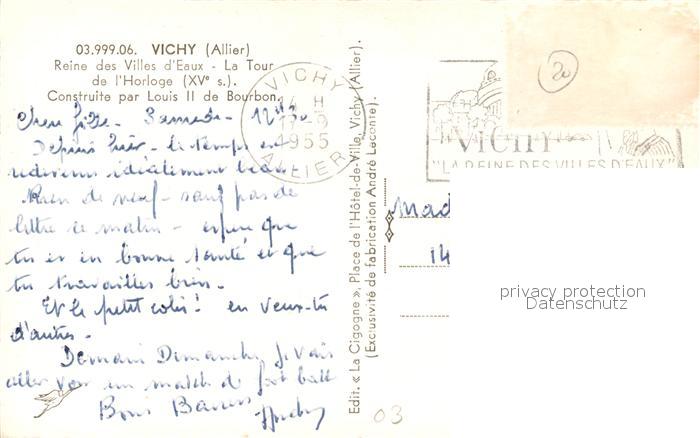 03.999.06. VICHY (Allier)
Reine des Villes d'Eaux - La Tour
de l'Horloge (XVᵉ s.).
Construite par Louis II de Bourbon.
Samedi - 12h30
Depuis hier - le temps est
redevenu idéalement beau
Rien de neuf - sauf pas de
lettre ce matin - espère que
tu es en bonne santé et que
tu travailles bien.
Et le petit colis! en veux-tu
d'autres -
Demain Dimanche, je vais
aller voir un match de foot ball
Bons Baisers
VICHY
14 H
17-9
1955
ALLIER
Edit. « La Cigogne », Place de l'Hôtel-de-Ville, Vichy (Allier).
(Exclusivité de fabrication André Leconte).
20
VICHY
"LA REINE DES VILLES D'EAUX"
Mad
14
privacy protection
Datenschutz
03